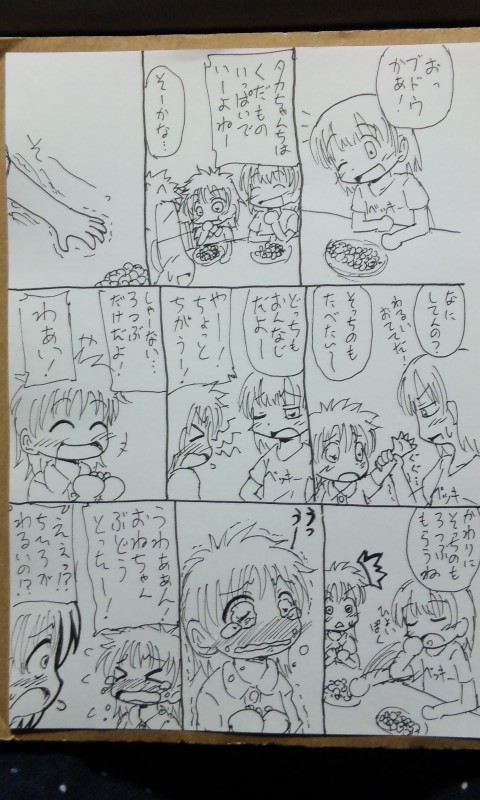 おっ
ブドウ
かぁ!
ベッキー
タカちゃんちは
くだもの
いっぱいで
いーよねー
そーかな…
なに
してんの?
わるい
おててだ!
ぐぐ…
ベッキ
そっちのも
たべたい〜
どっちも
おんなじ
だよー
やー!
ちょっと
ちがう!
ベッキー
しゃーない…
ろつぶ
だけだよ!
わぁい!
かわりに
そっちのも
ろつぶ
もらうね
ひょい
ぱく
ベッキー
うっ
う
うわぁぁん!
おねちゃん
ぶどう
とったー!
ええっ!?
ちひろが
わるいの!?